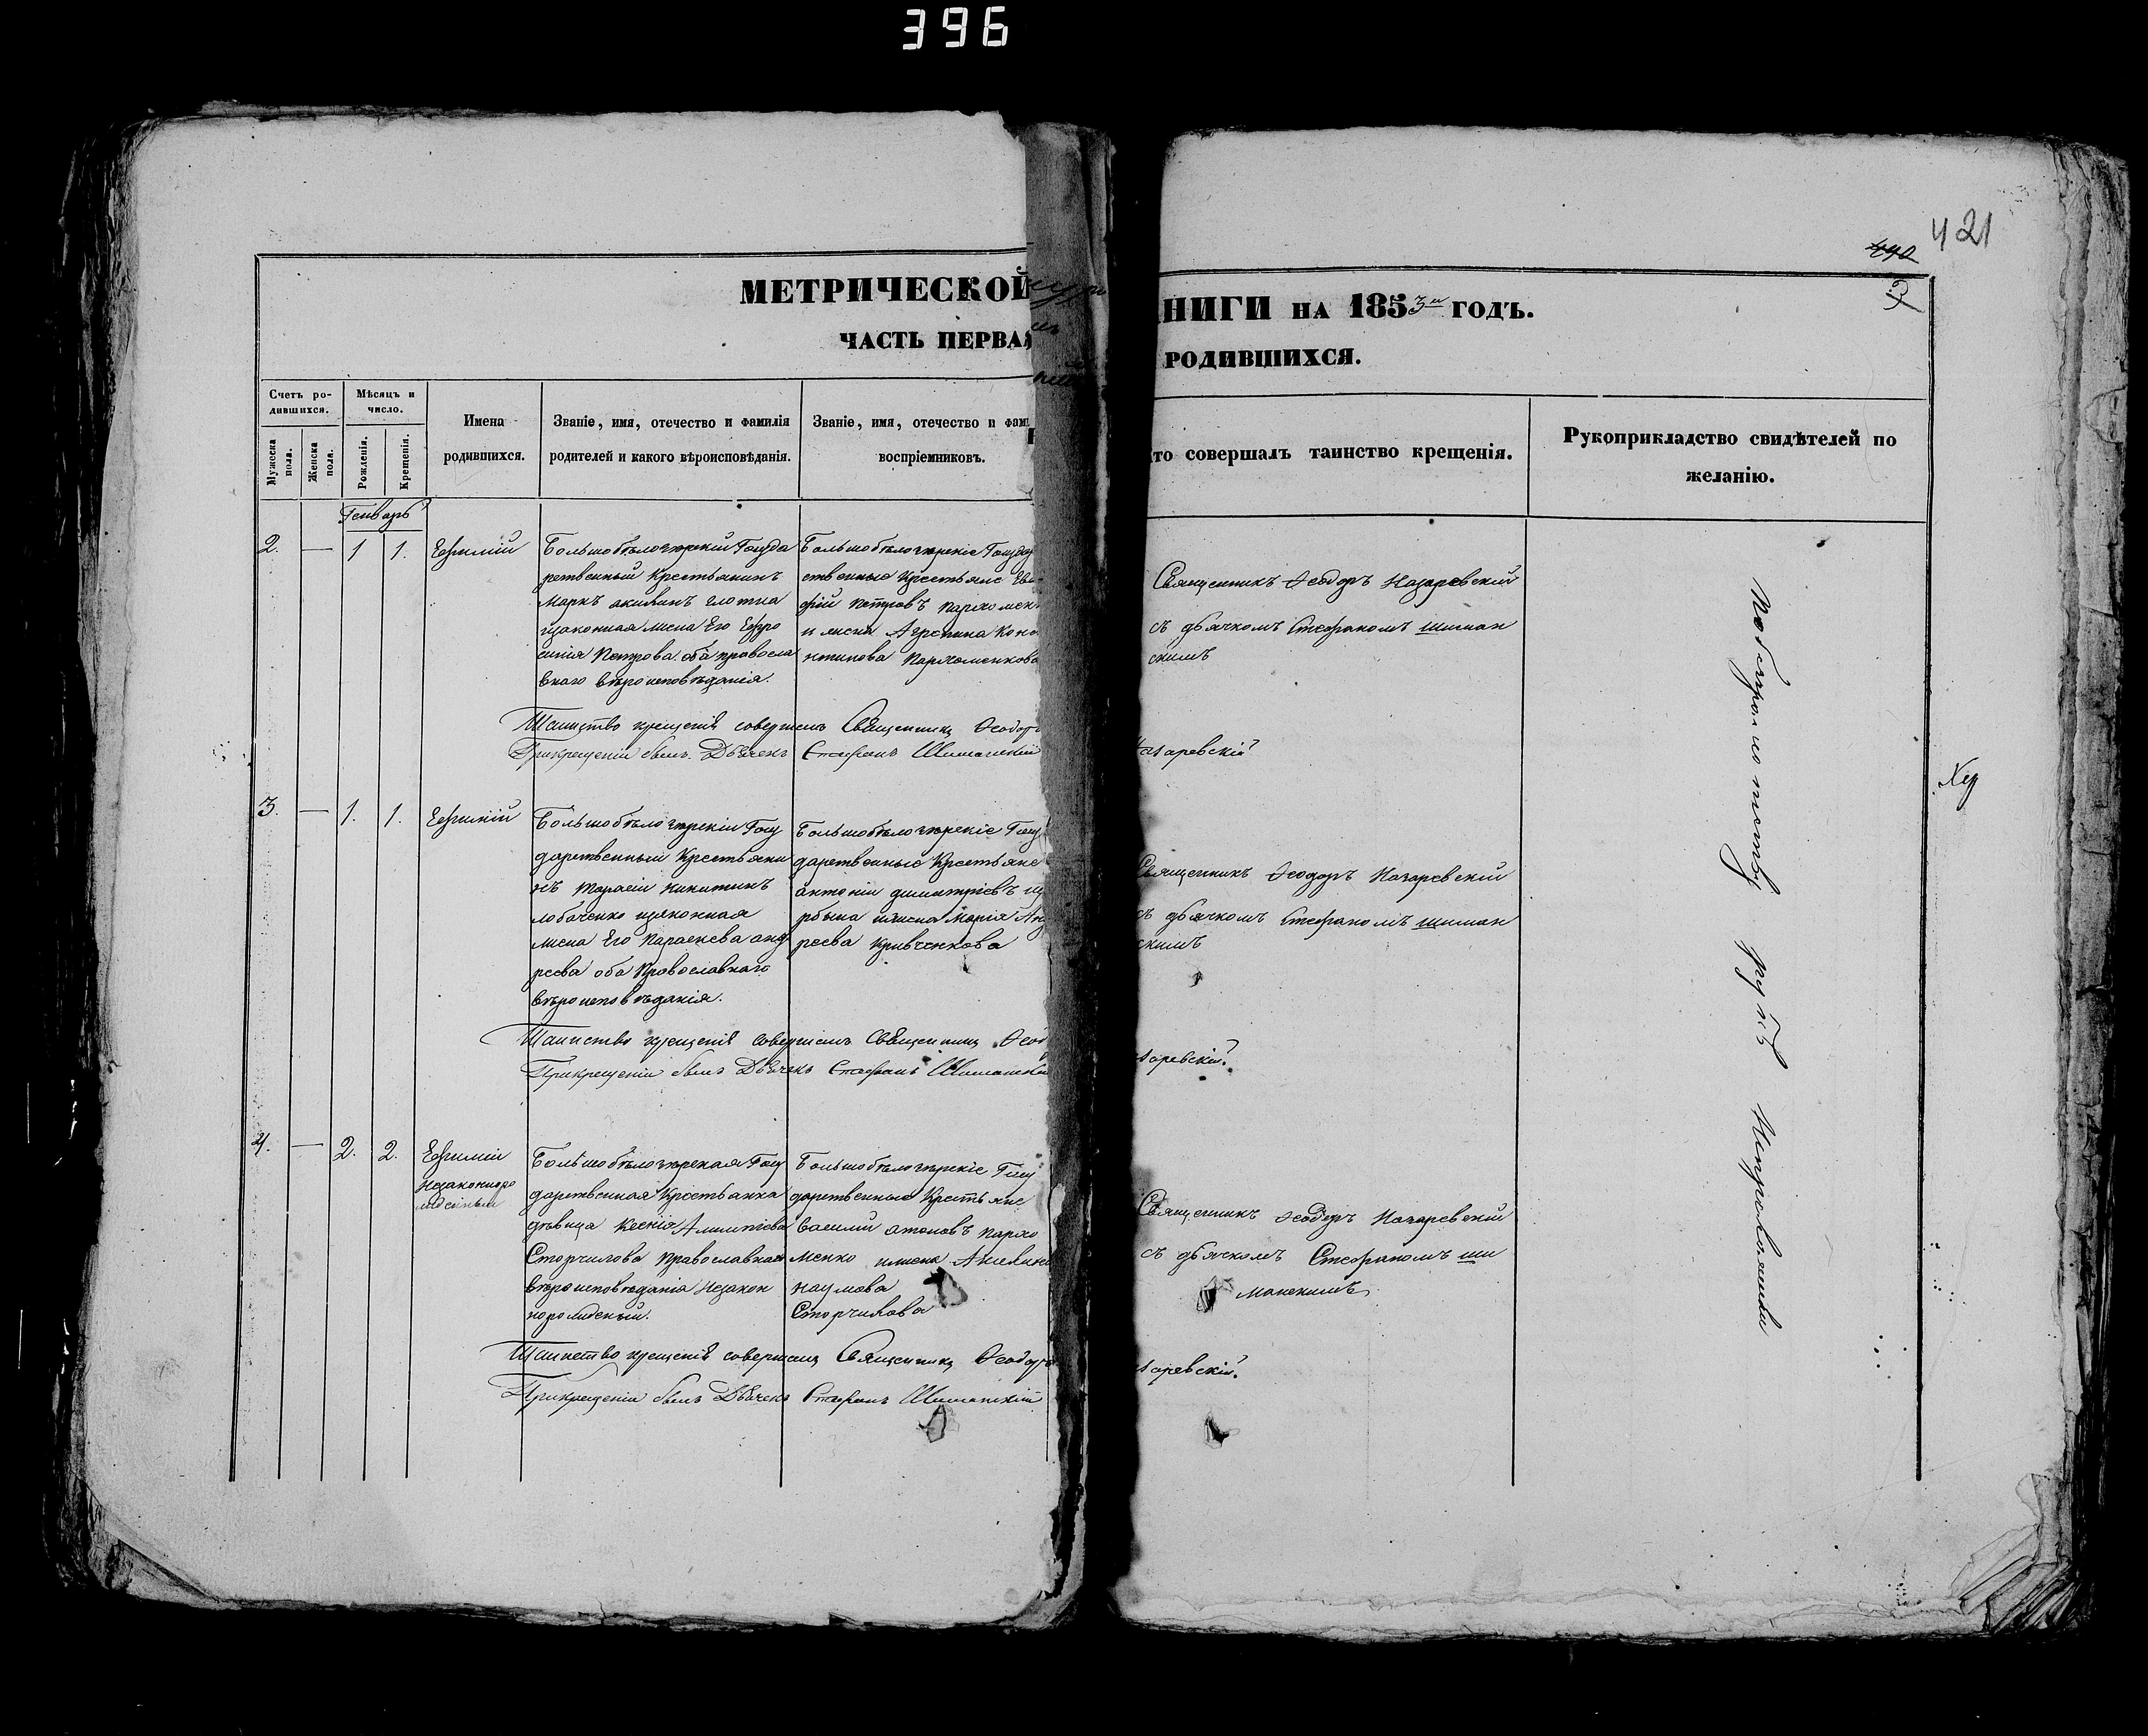 396
421
490
МЕТРИЧЕСКОЙ
НИГИ НА 1853й ГОДЪ.
ЧАСТЬ ПЕРВАЯ
РОДИВШИХСЯ.
Счетъ родившихся.
Мужеска пола.
Женска пола.
Мѣсяцъ и число.
Рожденія.
Крещенія.
Имена родившихся.
Званіе, имя, отечество и фамилія
родителей и какого вѣроисповѣданія.
Званіе, имя, отечество и фами
воспріемниковъ.
то совершалъ таинство крещенія.
Рукоприкладство свидѣтелей по
желанію.
Генварь
2. — 1 1. Евфимій
Большобѣлозюрскій Госуда
рственный Крестьянинъ
Маркъ акимавъ
изаконная жена Его Евфро
синія Петрова оба правосла
внаго вѣроисповѣданія.
Большобѣлозюрскіе Государ
ственные Крестьяне
фій Петровъ Пархомен
и жена Агрепина Конс
нтинова Пархоменкова
Священникъ Ѳеодоръ Назаревскій
съ дьячкомъ Стефаномъ шиман
скимъ
Таинство крещенія совершилъ Священникъ Ѳеодоръ
азаревскій
При крещеніи былъ Дьячекъ Стефанъ Шиманскій
3. — 1. 1. Евфимій
Большобѣлозюрскій Госу
дарственный Крестьяни
нъ Тарасій Никитинъ
лобаченко изаконная
жена Его Параскева анд
реева оба Православнаго
вѣроисповѣданія.
Большобѣлозюрскіе Госу
дарственные Крестьяне
антоній димитріевъ
и жена Марія Анд
реева Кривченкова
Священникъ Ѳеодоръ Назаревскій
съ дьячкомъ Стефаномъ шиман
скимъ
Таинство крещенія совершилъ Священникъ Ѳеод
заревскій.
При крещеніи былъ Дьячекъ Стефанъ Шиманскій
4. — 2. 2. Евфимій
Незаконнорожденный
Большобѣлозюрская Госу
дарственная Крестьянка
дѣвица Ксенія Алимпіева
Сторчилова Православнаго
вѣроисповѣданія Незакон
норожденый.
Большобѣлозюрскіе Госу
дарственные Крестьяне
василій Пархо
менко и жена
наумова
Сторчилова
Священникъ Ѳеодоръ Назаревскій
съ дьячкомъ Стефаномъ ши
манскимъ
Таинство крещенія совершилъ Священникъ Ѳеодоръ
заревскій.
При крещеніи былъ Дьячекъ Стефанъ Шиманскій